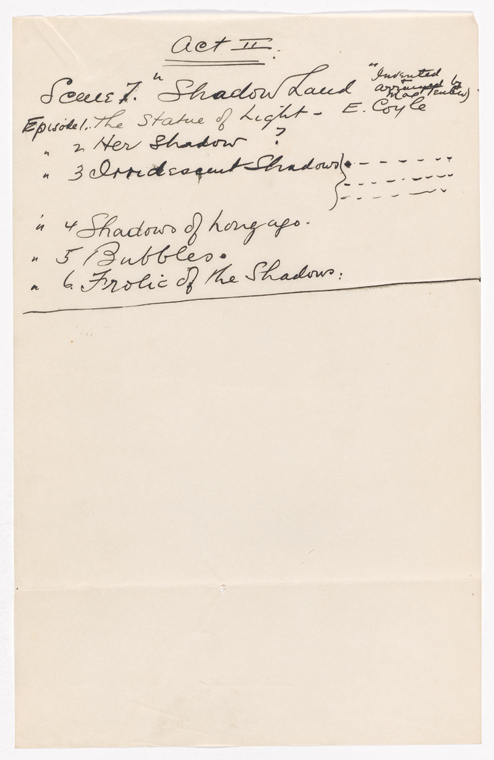 Act II.
Scene 7. "Shadow Land" "Invented
& arranged by
Episode 1. The Statue of Light - E. Coyle
" 2 Her Shadow ?
" 3 Irridescent Shadows
" 4 Shadows of long ago.
" 5 Bubbles.
" 6. Frolic of the Shadows.